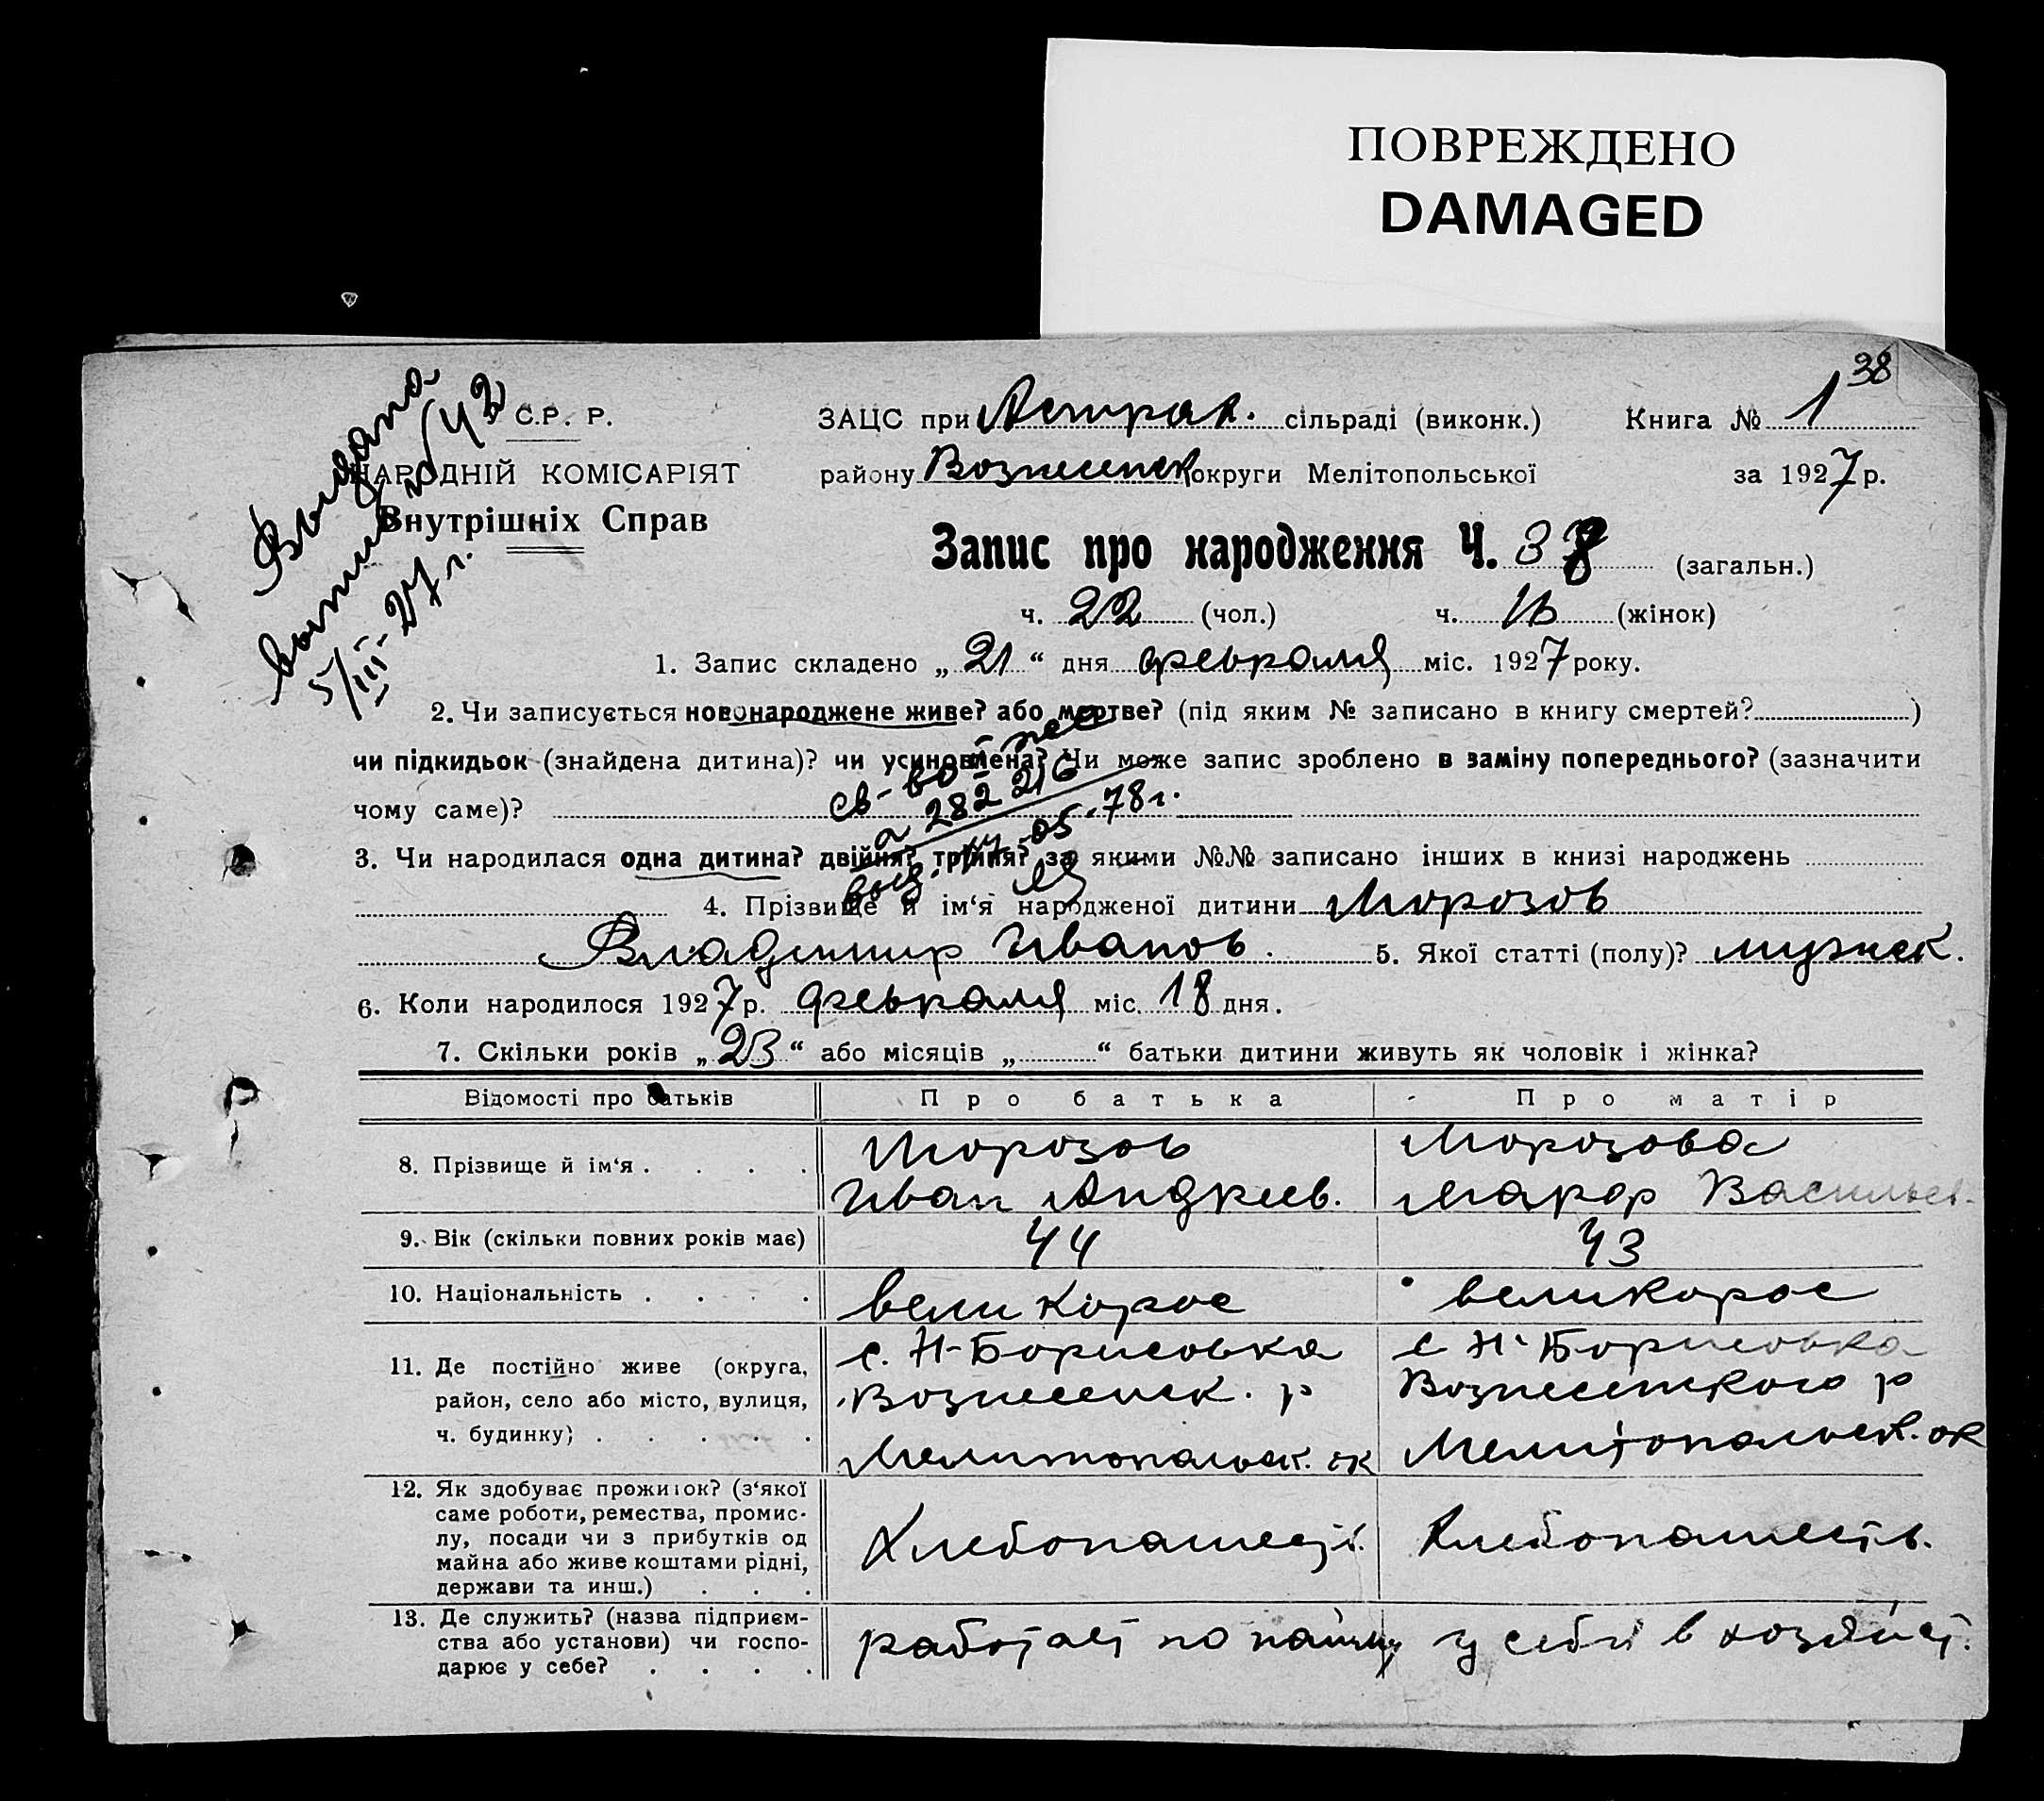 ПОВРЕЖДЕНО
DAMAGED
38
Выдана
выпись № 42
5/III-27 г.
У С.Р.Р.
НАРОДНІЙ КОМІСАРІЯТ
Внутрішніх Справ
ЗАЦС при Астрах. сільраді (виконк.) Книга № 1
району Вознесенск округи Мелітопольської за 1927 р.
Запис про народження Ч. 38 (загальн.)
ч. 22 (чол.) ч. 16 (жінок)
1. Запис складено „21“ дня февраля міс. 1927 року.
2. Чи записується новонароджене живе? або мертве? (під яким № записано в книгу смертей? )
чи підкидьок (знайдена дитина)? чи усиновлена? Чи може запис зроблено в заміну попереднього? (зазначити
чому саме)?
св-во
282216
выд. 05.78 г.
3. Чи народилася одна дитина? двійня? трійня? за якими №№ записано інших в книзі народжень
4. Прізвище й ім‘я народженої дитини Морозов
Владимир Иванов. 5. Якої статті (полу)? мужск.
6. Коли народилося 1927 р. февраля міс. 18 дня.
7. Скільки років „23“ або місяців „ “ батьки дитини живуть як чоловік і жінка?
Відомості про батьків Про батька Про матір
8. Прізвище й ім‘я . . . . Морозов Морозова
Иван Андреев. Васильев.
9. Вік (скільки повних років має) 44 43
10. Національність . . . . великорос великорос
11. Де постійно живе (округа, с. Н-Борисовка с Н-Борисовка
район, село або місто, вулиця, Вознесенск. р Вознесенского р
ч. будинку) . . . . . Мелитопольск. ок Мелитопольск. ок
12. Як здобуває прожиток? (з‘якої
саме роботи, ремества, промис-
лу, посади чи з прибутків од Хлебопашест. Хлебопашеств.
майна або живе коштами рідні,
держави та инш.) . . .
13. Де служить? (назва підприєм-
ства або установи) чи госпо- работает по найму у себя в хозяйст.
дарює у себе? . . . .